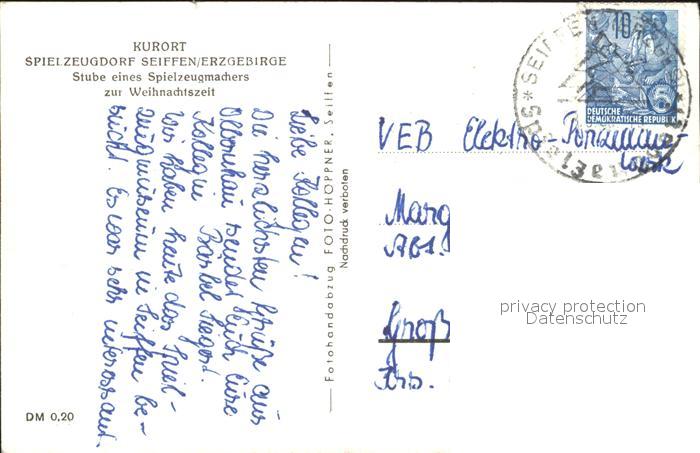 KURORT
SPIELZEUGDORF SEIFFEN/ERZGEBIRGE
Stube eines Spielzeugmachers
zur Weihnachtszeit
Liebe Kollegen!
Die herzlichsten Grüße aus
Olbernhau sendet Euch Eure
Kollegin Bärbel
Wir haben heute das Spiel-
zeugmuseum in Seiffen be-
sucht. Es war sehr interessant.
DM 0,20
Fotohandabzug FOTO-HÖPPNER, Seiffen
Nachdruck verboten
10
5
DEUTSCHE
DEMOKRATISCHE REPUBLIK
SEIFFEN
VEB Elektro-Porzellan-
werk
Marg
Abt.
Groß
Krs.
privacy protection
Datenschutz